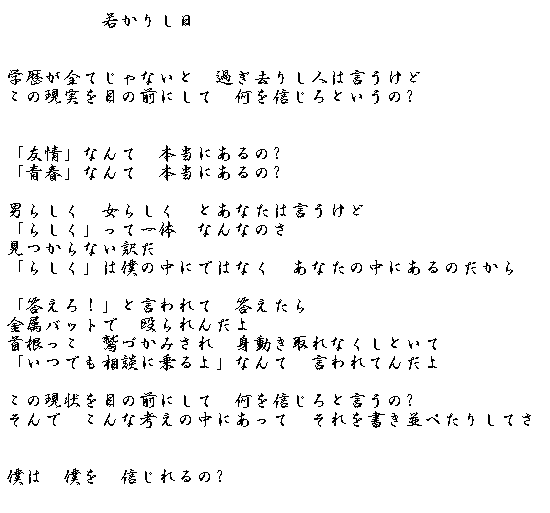 若かりし日
学歴が全てじゃないと　過ぎ去りし人は言うけど
この現実を目の前にして　何を信じろというの?
「友情」なんて　本当にあるの?
「青春」なんて　本当にあるの?
男らしく　女らしく　とあなたは言うけど
「らしく」って一体　なんなのさ
見つからない訳だ
「らしく」は僕の中にではなく　あなたの中にあるのだから
「答えろ!」と言われて　答えたら
金属バットで　殴られんだよ
首根っこ　鷲づかみされ　身動き取れなくしといて
「いつでも相談に乗るよ」なんて　言われてんだよ
この現状を目の前にして　何を信じろと言うの?
そんで　こんな考えの中にあって　それを書き並べたりしてさ
僕は　僕を　信じれるの?